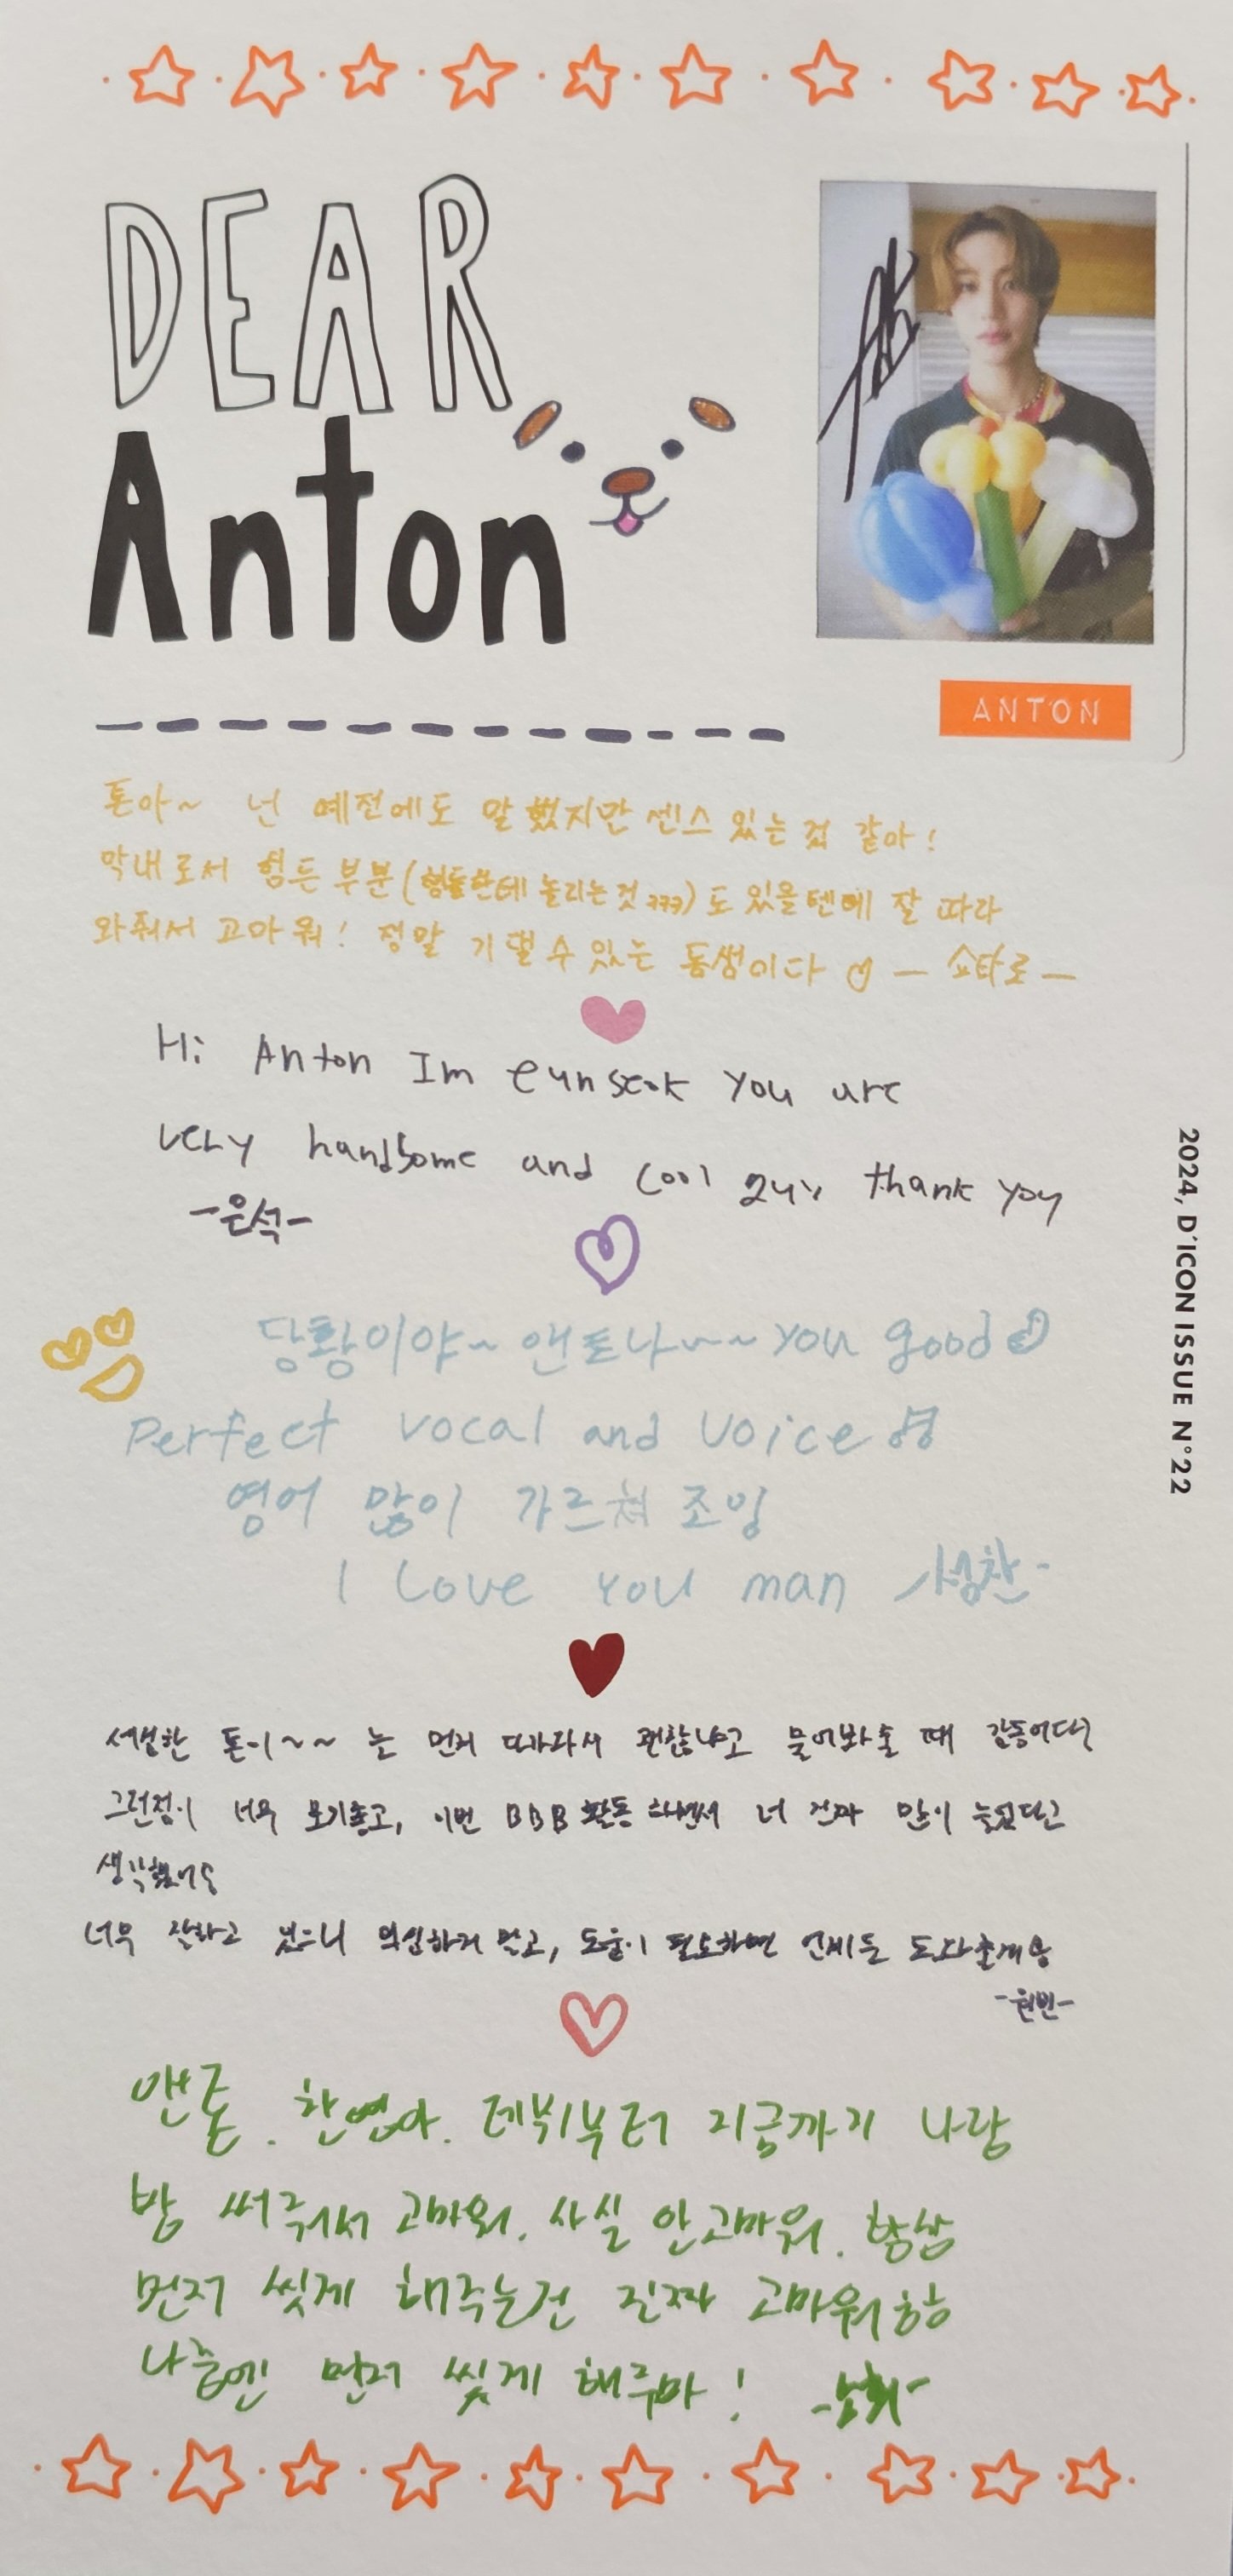 DEAR
Anton
ANTON
톤아~ 넌 예전에도 말했지만 센스 있는 것 같아!
막내로서 힘든 부분(형들한테 놀리는것 ㅋㅋㅋ)도 있을텐데 잘 따라
와줘서 고마워! 정말 기댈 수 있는 동생이다 ♡ - 쇼타로 -
Hi Anton Im eunseok you are
very handsome and cool guy thank you
-은석-
당황이야~ 앤토나~~~ you good
Perfect vocal and voice
영어 많이 가르쳐 조잉
I Love you man 성찬-
섬세한 톤이~~ 는 먼저 다가와서 괜찮냐고 물어봐줄 때 감동이다?
그런점이 너무 보기좋고, 이번 BBB 활동 하면서 너 진짜 많이 늘었다고
생각했어
너무 잘하고 있으니 의심하지 말고, 도움이 필요하면 언제든 도와줄게
-원빈-
앤톤. 찬영아. 데뷔부터 지금까지 나랑
방 써줘서 고마워. 사실 안고마워. 항상
먼저 씻게 해주는건 진짜 고마워
나중엔 먼저 씻게 해주마! -소희-
2024, D'ICON ISSUE N°22